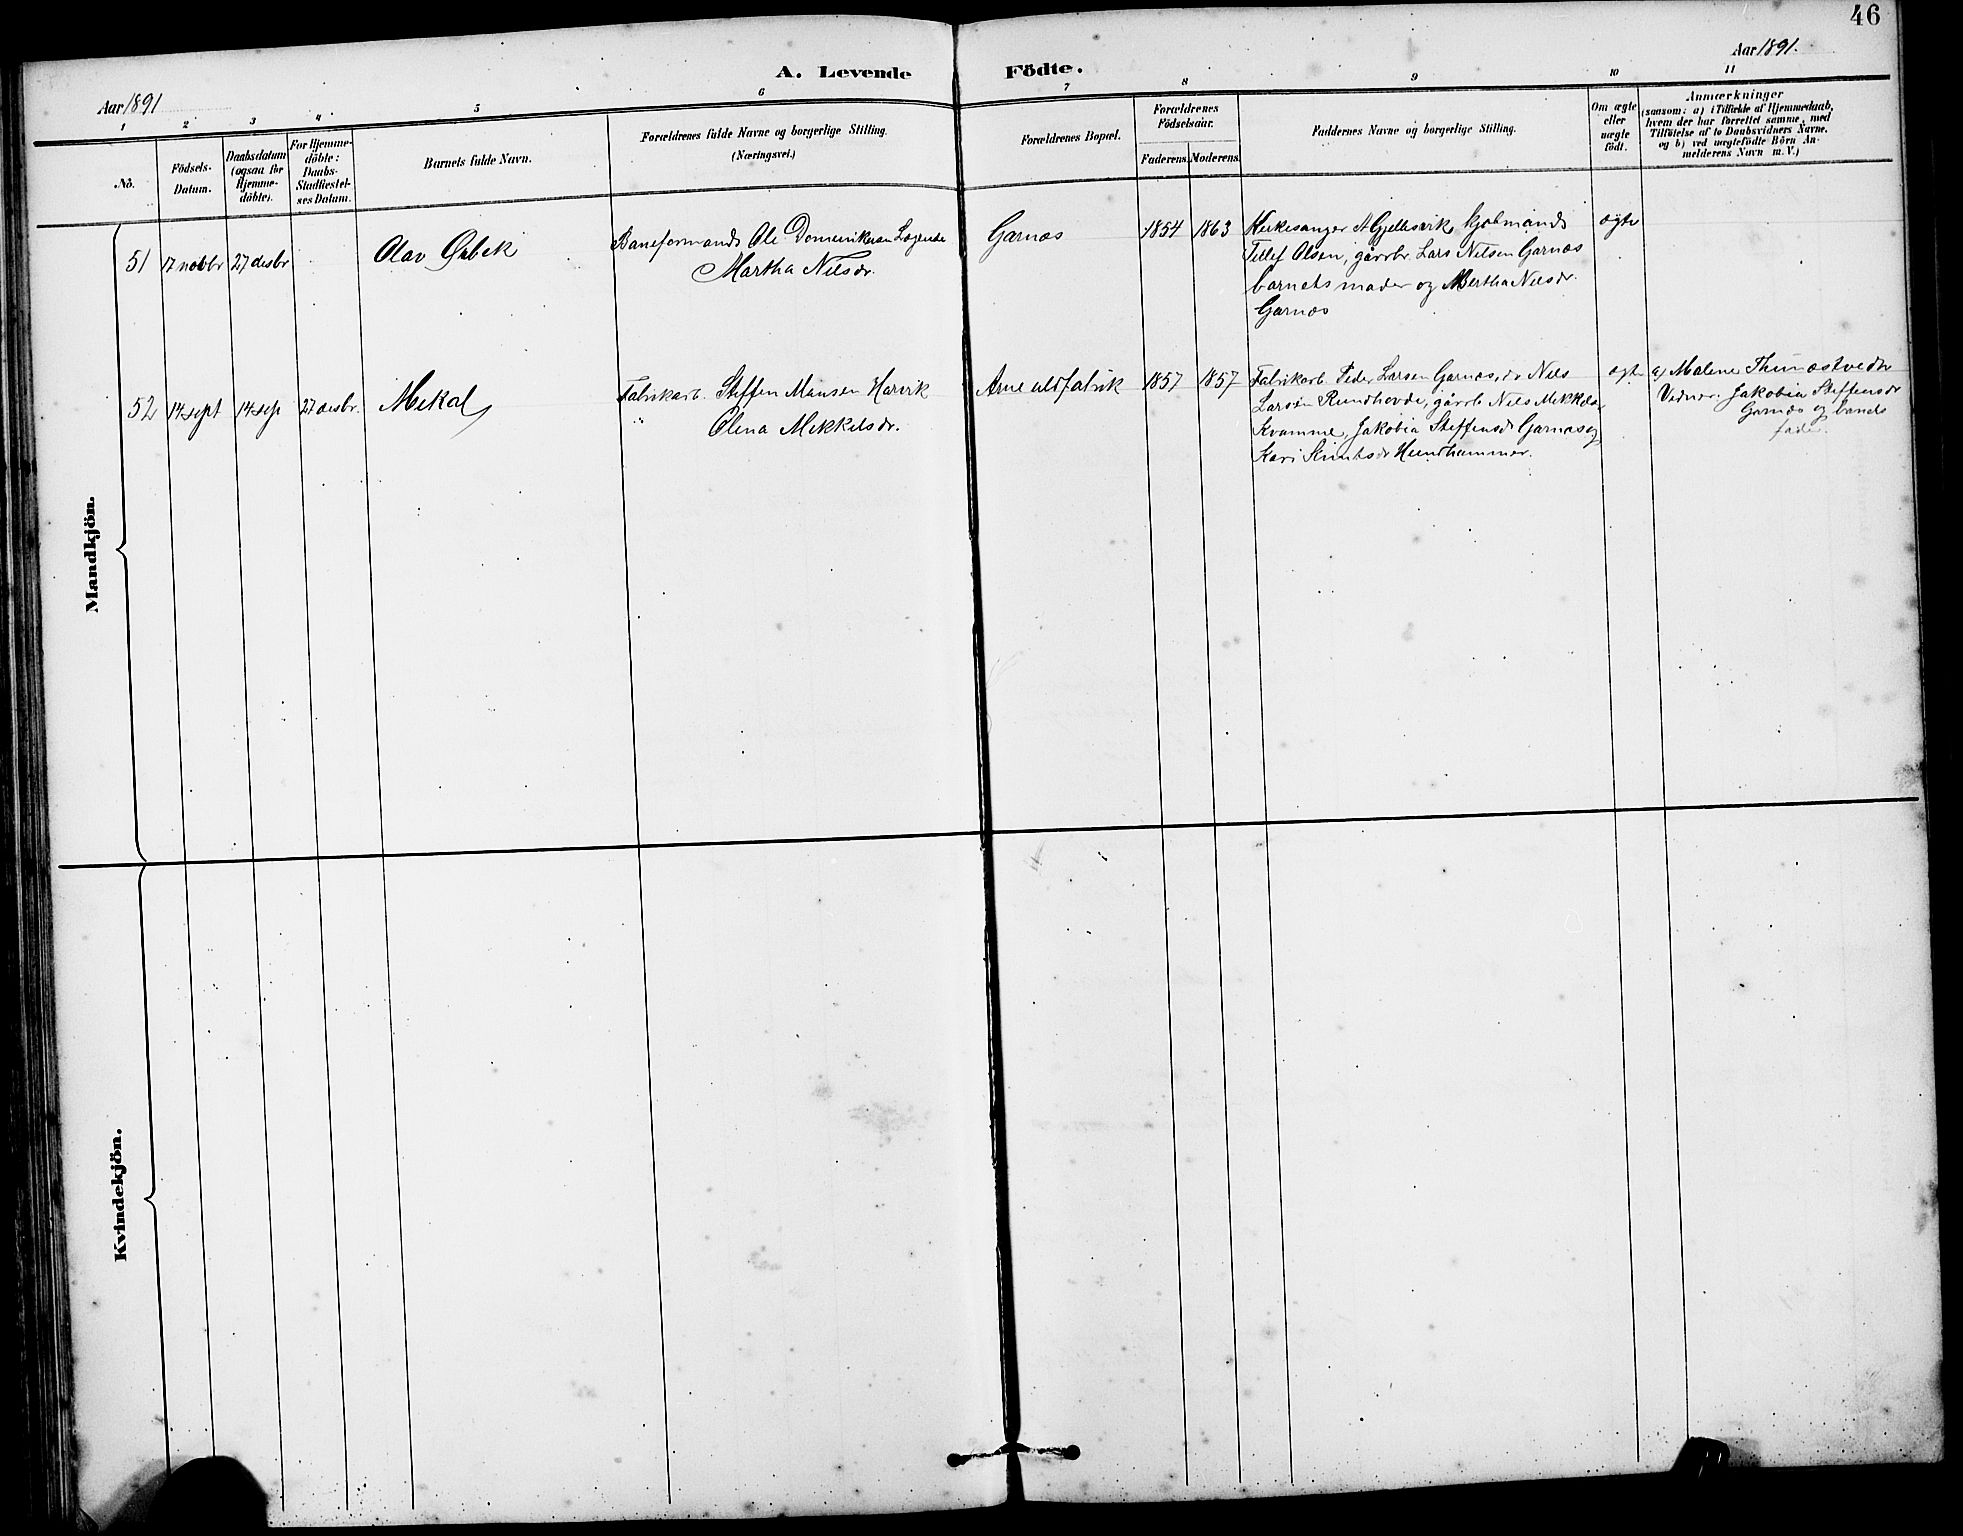 46
Aar 1891.
A. Levende Födte.
Aar 1891
1 2 3 4 5 6 7 8 9 10 11
No.
Födsels-
Datum.
Daabsdatum
(ogsaa for
Hjemme-
döbte).
For Hjemme-
döbte:
Daabs-
Stadfæstel-
ses Datum.
Barnets fulde Navn.
Forældrenes fulde Navne og borgerlige Stilling.
(Næringsvei.)
Forældrenes Bopæl.
Forældrenes
Födselsaar.
Faderens. Moderens.
Faddernes Navne og borgerlige Stilling.
Om ægte
eller
uægte
födt.
Anmærkninger
(saasom: a) i Tilfælde af Hjemmedaab,
hvem der har forrettet samme, med
Tilföielse af to Daabsvidners Navne.
og b) ved uægtefödte Börn An-
melderens Navn m. V.)
Mandkjön.
51
17 novbr
27 desbr
Olav
Baneformand Ole Domenikusen
Martha Nilsdr.
Garnæs
1854
1863
Kirkesanger A Gjellesvik, kjøbmand
Tellef Olsen, gårbr. Lars Nilsen Garnæs
barnets moder og Bertha Nilsdr.
Garnæs
ægte
52
14 sept
14 sep
27 desbr.
Mikal
Fabrikarb. Steffen Monsen Harvik
Olina Mikkelsdr.
Arne uldfabrik
1857
1857
Fabrikarb. Peder Larsen Garnæs, do Nils
Larsen Rundhovde, gårrb Nils Mikkels.
Kvamme, Jakobia Steffensdr Garnæs og
Kari Knutsdr Hundhammer.
ægte
a) Malene Thunæstvedt
Vidner. Jakobia Steffensdr
Garnæs og barnets
fader.
Kvindekjön.